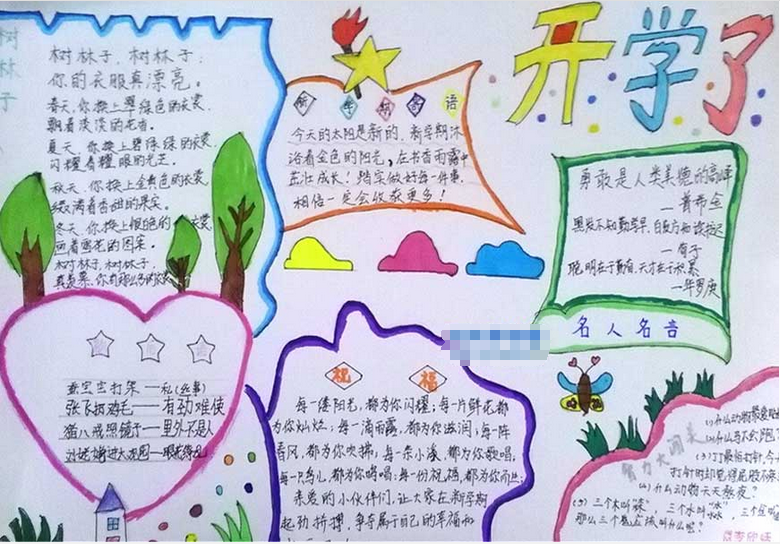 开学了
树林子
树林子，树林子：
你的衣服真漂亮。
春天，你换上翠绿色的衣裳
飘着淡淡的花香。
夏天，你换上碧绿绿的衣裳
闪耀着耀眼的光芒。
秋天，你换上金黄色的衣裳
缀满着香甜的果实。
冬天，你换上银白色的衣裳
画着雪花的图案。
树林子，树林子，
新年好 语
今天的太阳是新的，新学期沐
浴着金色的阳光，在书香雨露中
茁壮成长！踏实做好每一件事，
相信一定会收获更多！
勇敢是人类美德的高峰
—普希金
黑发不知勤学早，白首方悔读书迟
—荀子
聪明在于勤奋，天才在于积累
—华罗庚
名人名言
蚕宝宝打架——私(丝)事
张飞拔鸡毛——有劲难使
猪八戒照镜子——里外不是人
刘姥姥进大观园——眼花缭乱
祝 福
每一缕阳光，都为你闪耀；每一片鲜花都
为你灿烂；每一滴雨露，都为你滋润；每一阵
春风，都为你吹拂；每一条小溪，都为你歌唱，
每一只鸟儿，都为你鸣唱；每一份祝福，都为你而出；
亲爱的小伙伴们，让大家在新学期
起劲拼搏，争夺属于自己的幸福和
智力大闯关
(1)什么动物最爱贴
(2)什么马不会跑？
(3)丁丁最怕打针，今
打针时却觉得屁股不疼
(4)什么动物天天熬夜？
(5)三个木叫“森”，三个水叫“淼”，三个
那么三个鬼应该叫什么呢？